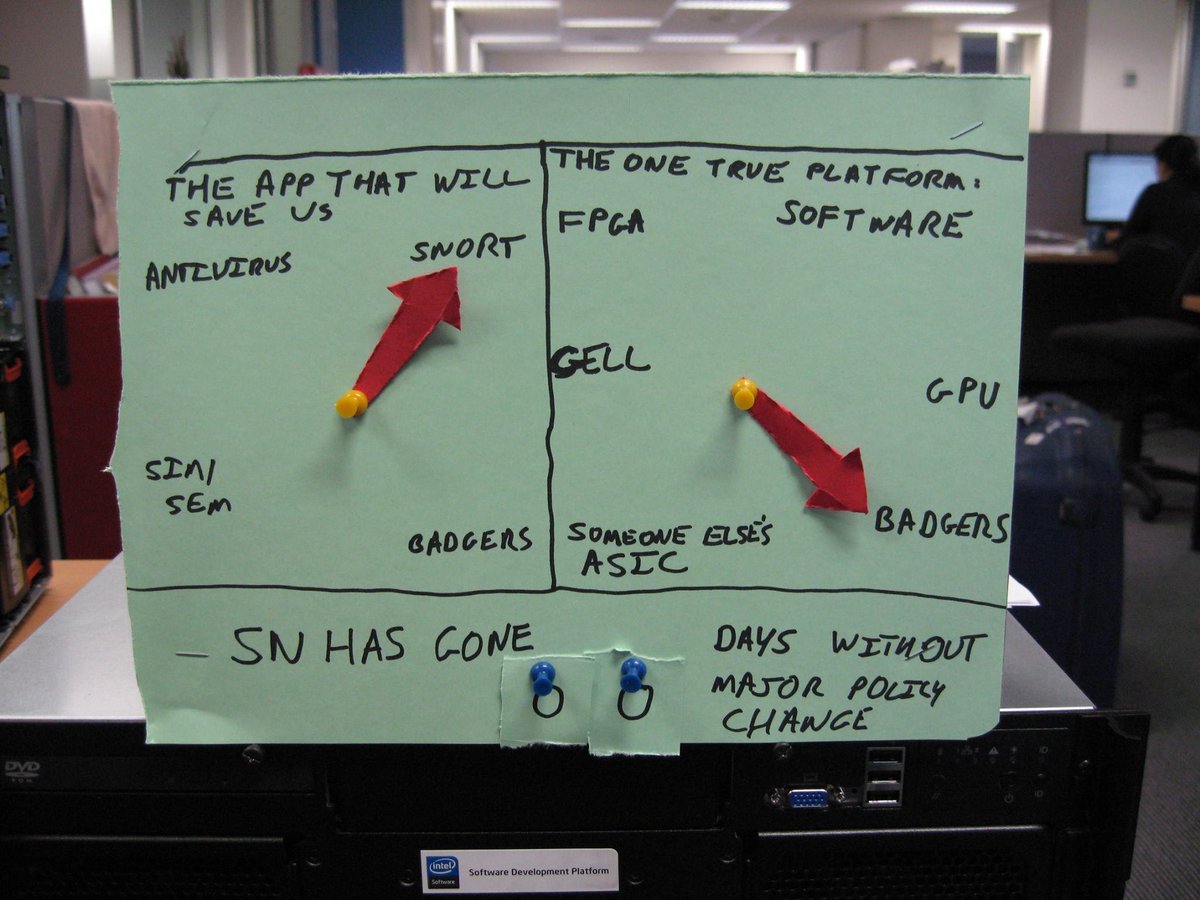 THE APP THAT WILL
SAVE US
ANTIVIRUS
SNORT
SIM/
SEM
BADGERS
THE ONE TRUE PLATFORM:
FPGA
SOFTWARE
CELL
GPU
SOMEONE ELSE'S
ASIC
BADGERS
— SN HAS GONE
0 0
DAYS WITHOUT
MAJOR POLICY
CHANGE
DVD
ROM
intel
Software
Software Development Platform